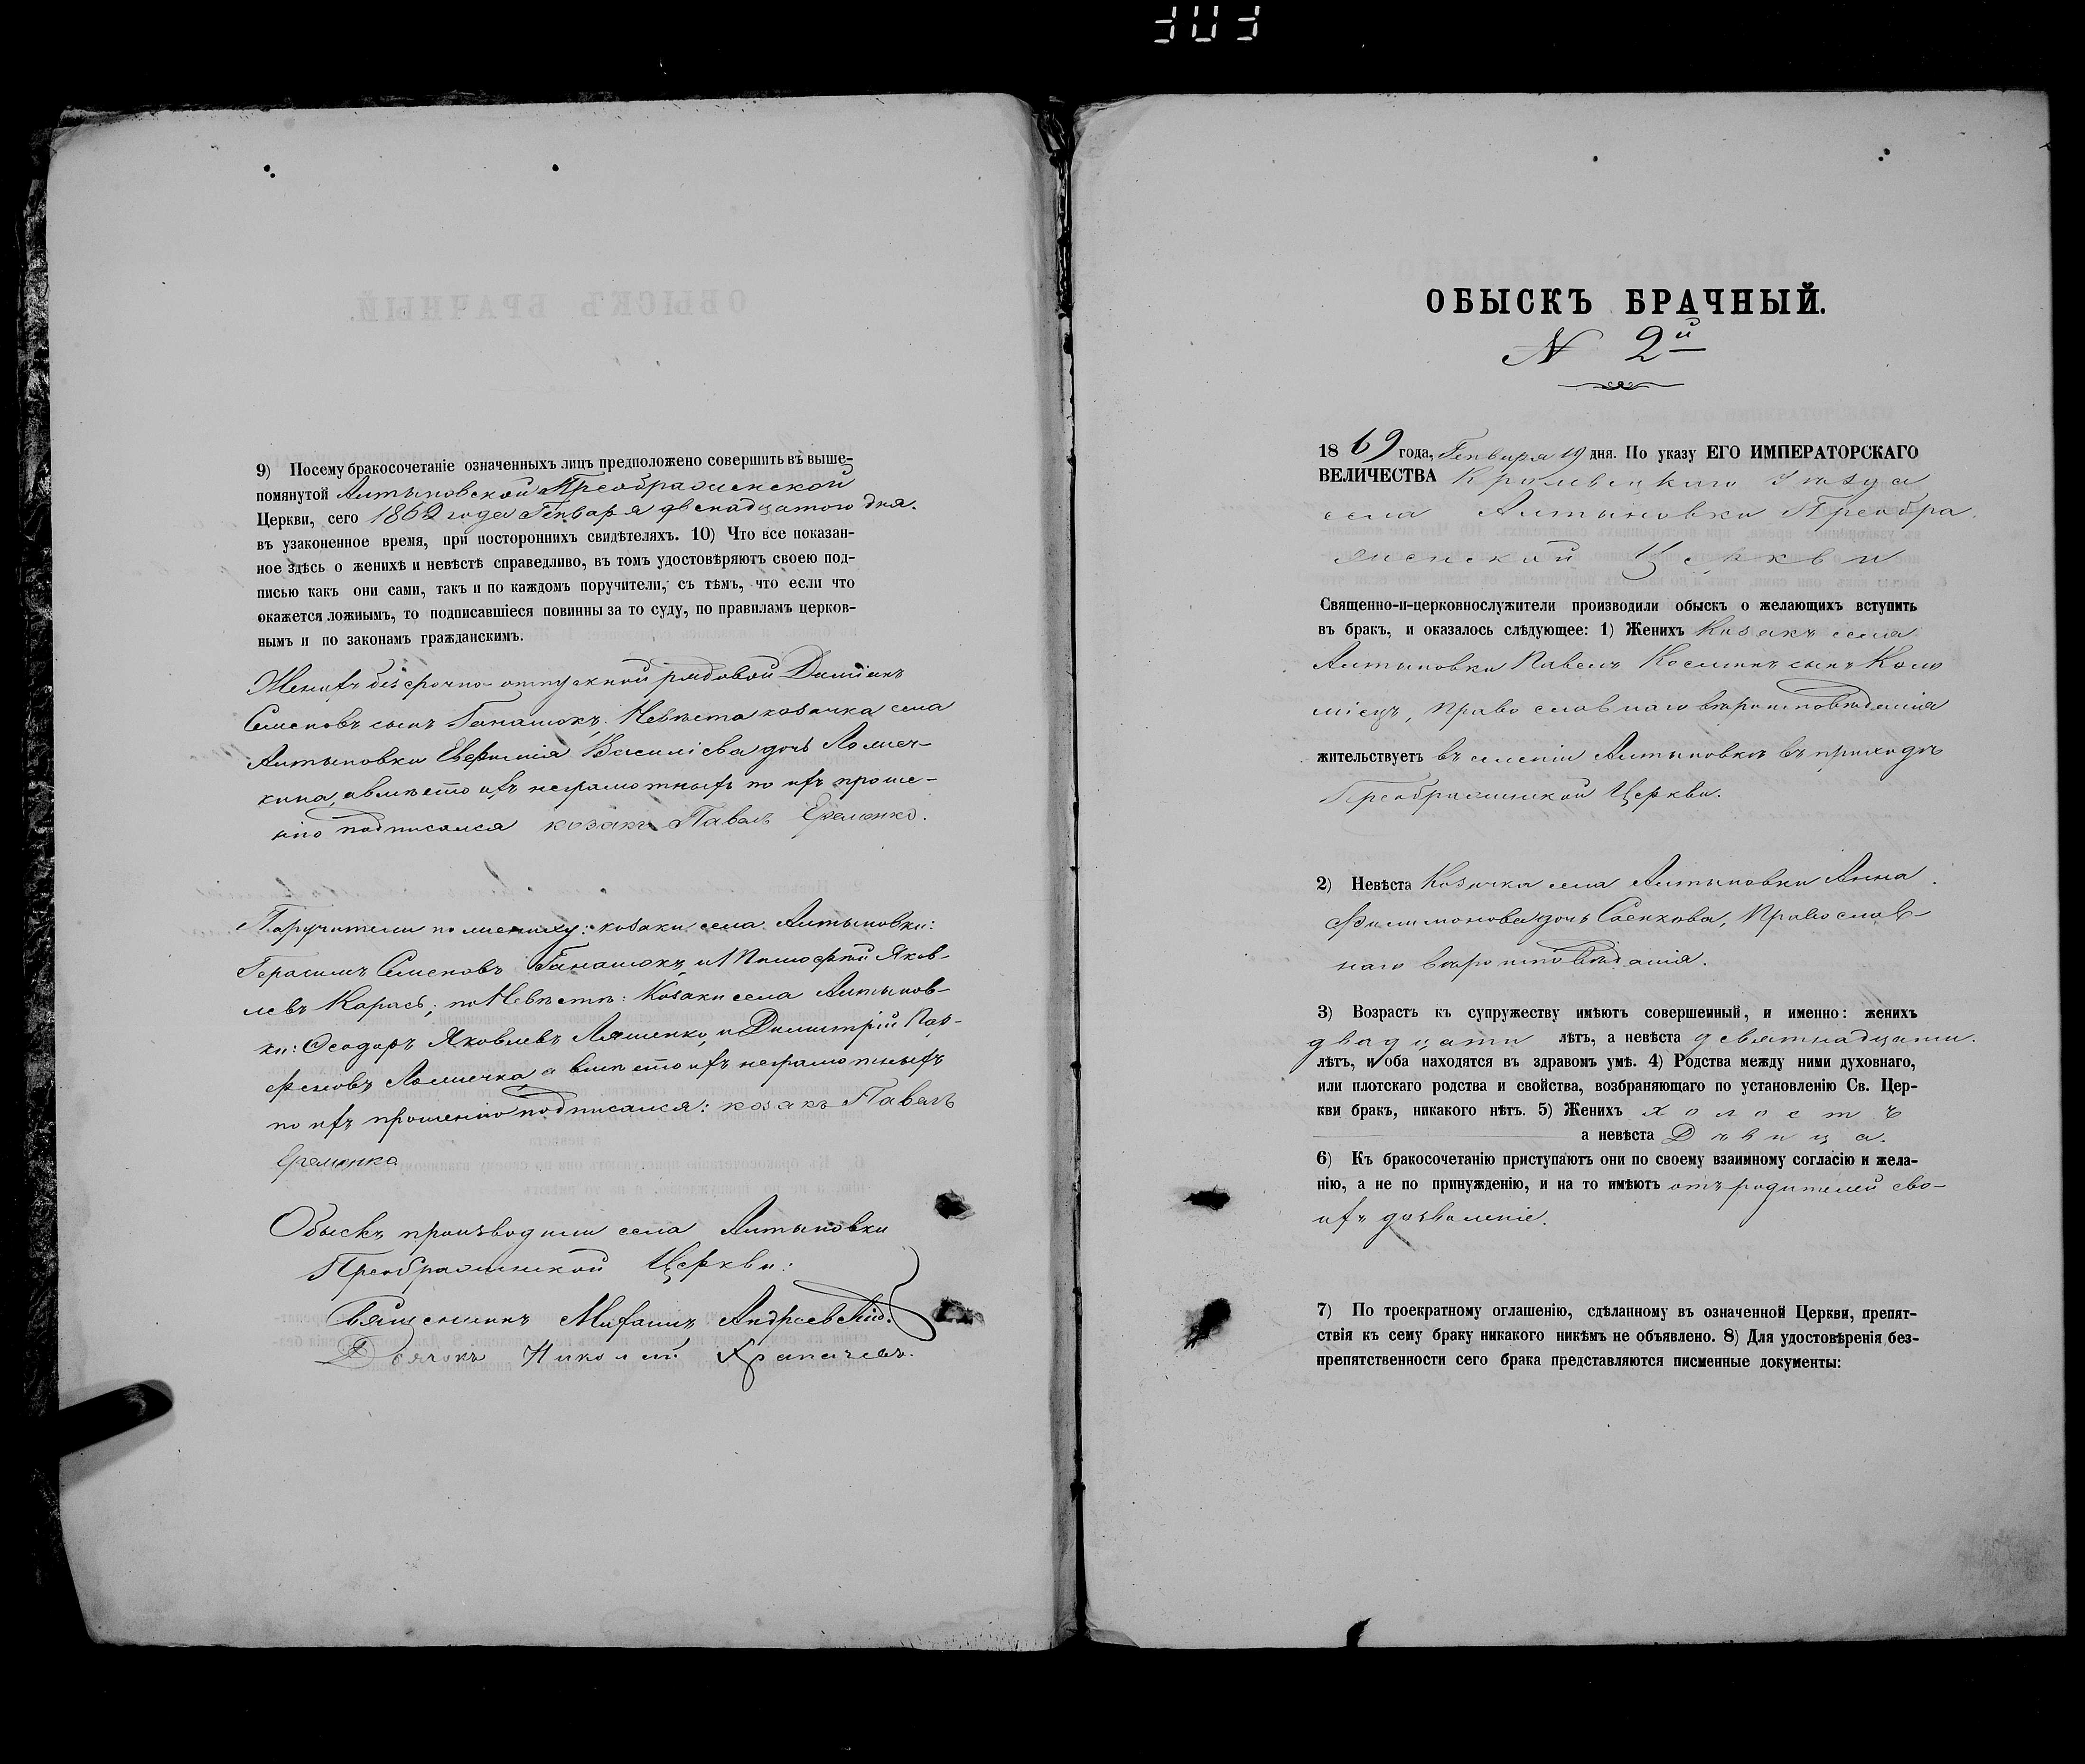 303
9) Посему бракосочетаніе означенныхъ лицъ предположено совершить въ выше-
помянутой Алтыновской Преображенской
Церкви, сего 1869 года Генваря двенадцатого дня.
въ узаконенное время, при постороннихъ свидѣтеляхъ. 10) Что все показан-
ное здѣсь о женихѣ и невѣстѣ справедливо, въ томъ удостовѣряютъ своею под-
писью какъ они сами, такъ и по каждомъ поручители, съ тѣмъ, что если что
окажется ложнымъ, то подписавшіеся повинны за то суду, по правиламъ церков-
нымъ и по законамъ гражданскимъ.
Женихъ безсрочно-отпускной рядовой Даміанъ
Семеновъ сынъ Ганашокъ. Невѣста козачка села
Алтыновки Евфимія Василіева дочь Ломеч-
кина, а вмѣсто ихъ неграмотныхъ по ихъ проше-
нію подписался козакъ Павелъ Еременко.
Поручители по жениху: козаки села Алтыновки:
Герасимъ Семеновъ Ганашокъ, и Тимофей Яков-
левъ Карась; по Невѣстѣ: Козаки села Алтынов-
ки: Феодоръ Яковлевъ Ляшенко, и Димитрій Пар-
феновъ Ломечка а вмѣсто ихъ неграмотныхъ
по ихъ прошенію подписался: козакъ Павелъ
Еременко
Обыскъ производили села Алтыновки
Преображенской Церкви:
Священникъ Михаилъ Андріевскій.
Дьячокъ Николай
ОБЫСКЪ БРАЧНЫЙ.
N 2й
1869 года, Генваря 19 дня. По указу ЕГО ИМПЕРАТОРСКАГО
ВЕЛИЧЕСТВА Кролевецкаго Уѣзда
села Алтыновки Преобра
женской Церкви
Священно-и-церковнослужители производили обыскъ о желающихъ вступить
въ бракъ, и оказалось слѣдующее: 1) Женихъ Козакъ села
Алтыновки Павелъ Косминъ сынъ Коло
міецъ, Православнаго вѣроисповѣданія
жительствуетъ въ селеніи Алтыновкѣ въ приходѣ
Преображенской Церкви.
2) Невѣста Козачка села Алтыновки Анна
Филимонова дочь Саенкова, Православ-
наго вѣроисповѣданія.
3) Возрастъ къ супружеству имѣютъ совершенный, и именно: женихъ
двадцати лѣтъ, а невѣста девятнадцати.
лѣтъ, и оба находятся въ здравомъ умѣ. 4) Родства между ними духовнаго,
или плотскаго родства и свойства, возбраняющаго по установленію Св. Цер-
кви бракъ, никакого нѣтъ. 5) Женихъ холостъ
а невѣста Дѣвица.
6) Къ бракосочетанію приступаютъ они по своему взаимному согласію и жела-
нію, а не по принужденію, и на то имѣютъ отъ родителей сво-
ихъ дозволеніе.
7) По троекратному оглашенію, сдѣланному въ означенной Церкви, препят-
ствія къ сему браку никакого никѣмъ не объявлено. 8) Для удостовѣренія без-
препятственности сего брака представляются писменные документы: